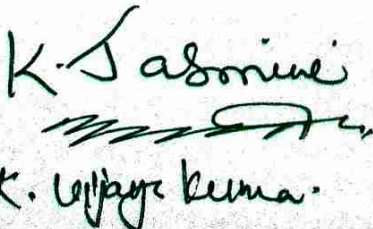 K. Jasmine
K. Vijaya Kuma.